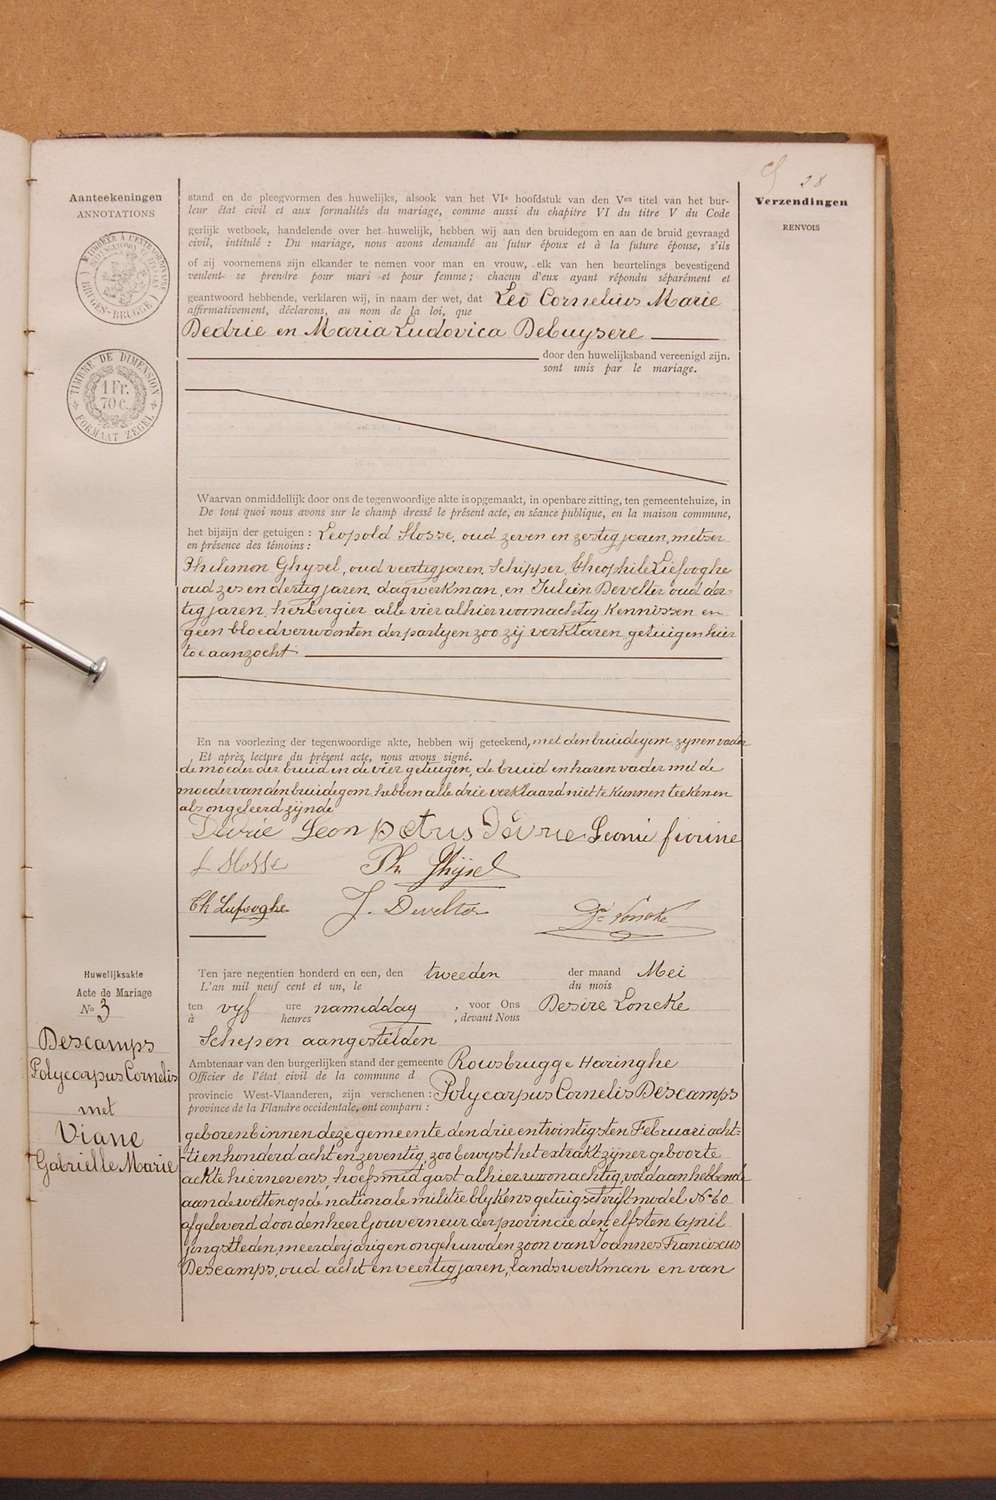 28
Aanteekeningen
ANNOTATIONS
Verzendingen
RENVOIS
BRUGES-BRUGGE
TIMBRE DE DIMENSION
1 Fr.
70 c.
FORMAAT ZEGEL
stand en de pleegvormen des huwelijks, alsook van het VIe hoofdstuk van den Ven titel van het bur-
leur état civil et aux formalités du mariage, comme aussi du chapitre VI du titre V du Code
gerlijk wetboek, handelende over het huwelijk, hebben wij aan den bruidegom en aan de bruid gevraagd
civil, intitulé : Du mariage, nous avons demandé au futur époux et à la future épouse, s'ils
of zij voornemens zijn elkander te nemen voor man en vrouw, elk van hen beurtelings bevestigend
veulent se prendre pour mari et pour femme ; chacun d'eux ayant répondu séparément et
geantwoord hebbende, verklaren wij, in naam der wet, dat Leo Cornelius Marie
affirmativement, déclarons, au nom de la loi, que
Dedrie en Maria Ludovica Debuysere
door den huwelijksband vereenigd zijn.
sont unis par le mariage.
Waarvan onmiddelijk door ons de tegenwoordige akte is opgemaakt, in openbare zitting, ten gemeentehuize, in
De tout quoi nous avons sur le champ dressé le présent acte, en séance publique, en la maison commune,
het bijzijn der getuigen : Leopold Hosse, oud zeven en zestig jaren, metser
en présence des témoins :
Philemon Ghysel, oud veertig jaren, schipper, Theophile Liefooghe
oud zes en dertig jaren, dagwerkman, en Julien Develter oud der-
tig jaren, herbergier alle vier alhier woonachtig kennissen en
geen bloedverwanten der partyen zoo zij verklaren getuigen hier
toe aanzocht
En na voorlezing der tegenwoordige akte, hebben wij geteekend, met den bruidegom zynen vader
Et après lecture du présent acte, nous avons signé.
de moeder der bruid en de vier getuigen, de bruid en haren vader met de
moeder van den bruidegom hebben alle drie verklaard niet te kunnen teekenen
als ongeleerd zijnde
Dedrie Leon petrus Dedrie Leonie fiorine
L Hosse Ph Ghijsel
Th Liefooghe J. Develter De Loncke
Huwelijksakte
Acte de Mariage
No 3
Descamps
Polycarpus Cornelis
met
Viane
Gabrielle Marie
Ten jare negentien honderd en een, den tweeden der maand Mei
L'an mil neuf cent et un, le du mois
ten vyf ure namiddag ; voor Ons Desire Loncke
à heures ; devant Nous
Schepen aangestelden
Ambtenaar van den burgerlijken stand der gemeente Rousbrugge Haringhe
Officier de l'état civil de la commune d
provincie West-Vlaanderen, zijn verschenen : Polycarpus Cornelis Descamps
province de la Flandre occidentale, ont comparu :
geboren binnen deze gemeente den drie en twintigsten Februari acht-
tien honderd acht en zeventig, zoo bewyst het extrakt zyner geboorte
akte hiernevens, hoefsmidgast alhier woonachtig, voldaan hebbende
aan de wetten op de nationale militie blykens getuigschrift model No 60
afgeleverd door den heer Gouverneur der provincie den elfsten April
jongstleden, meerderjarigen ongehuwden zoon van Joannes Franciscus
Descamps, oud acht en veertig jaren, landswerkman en van